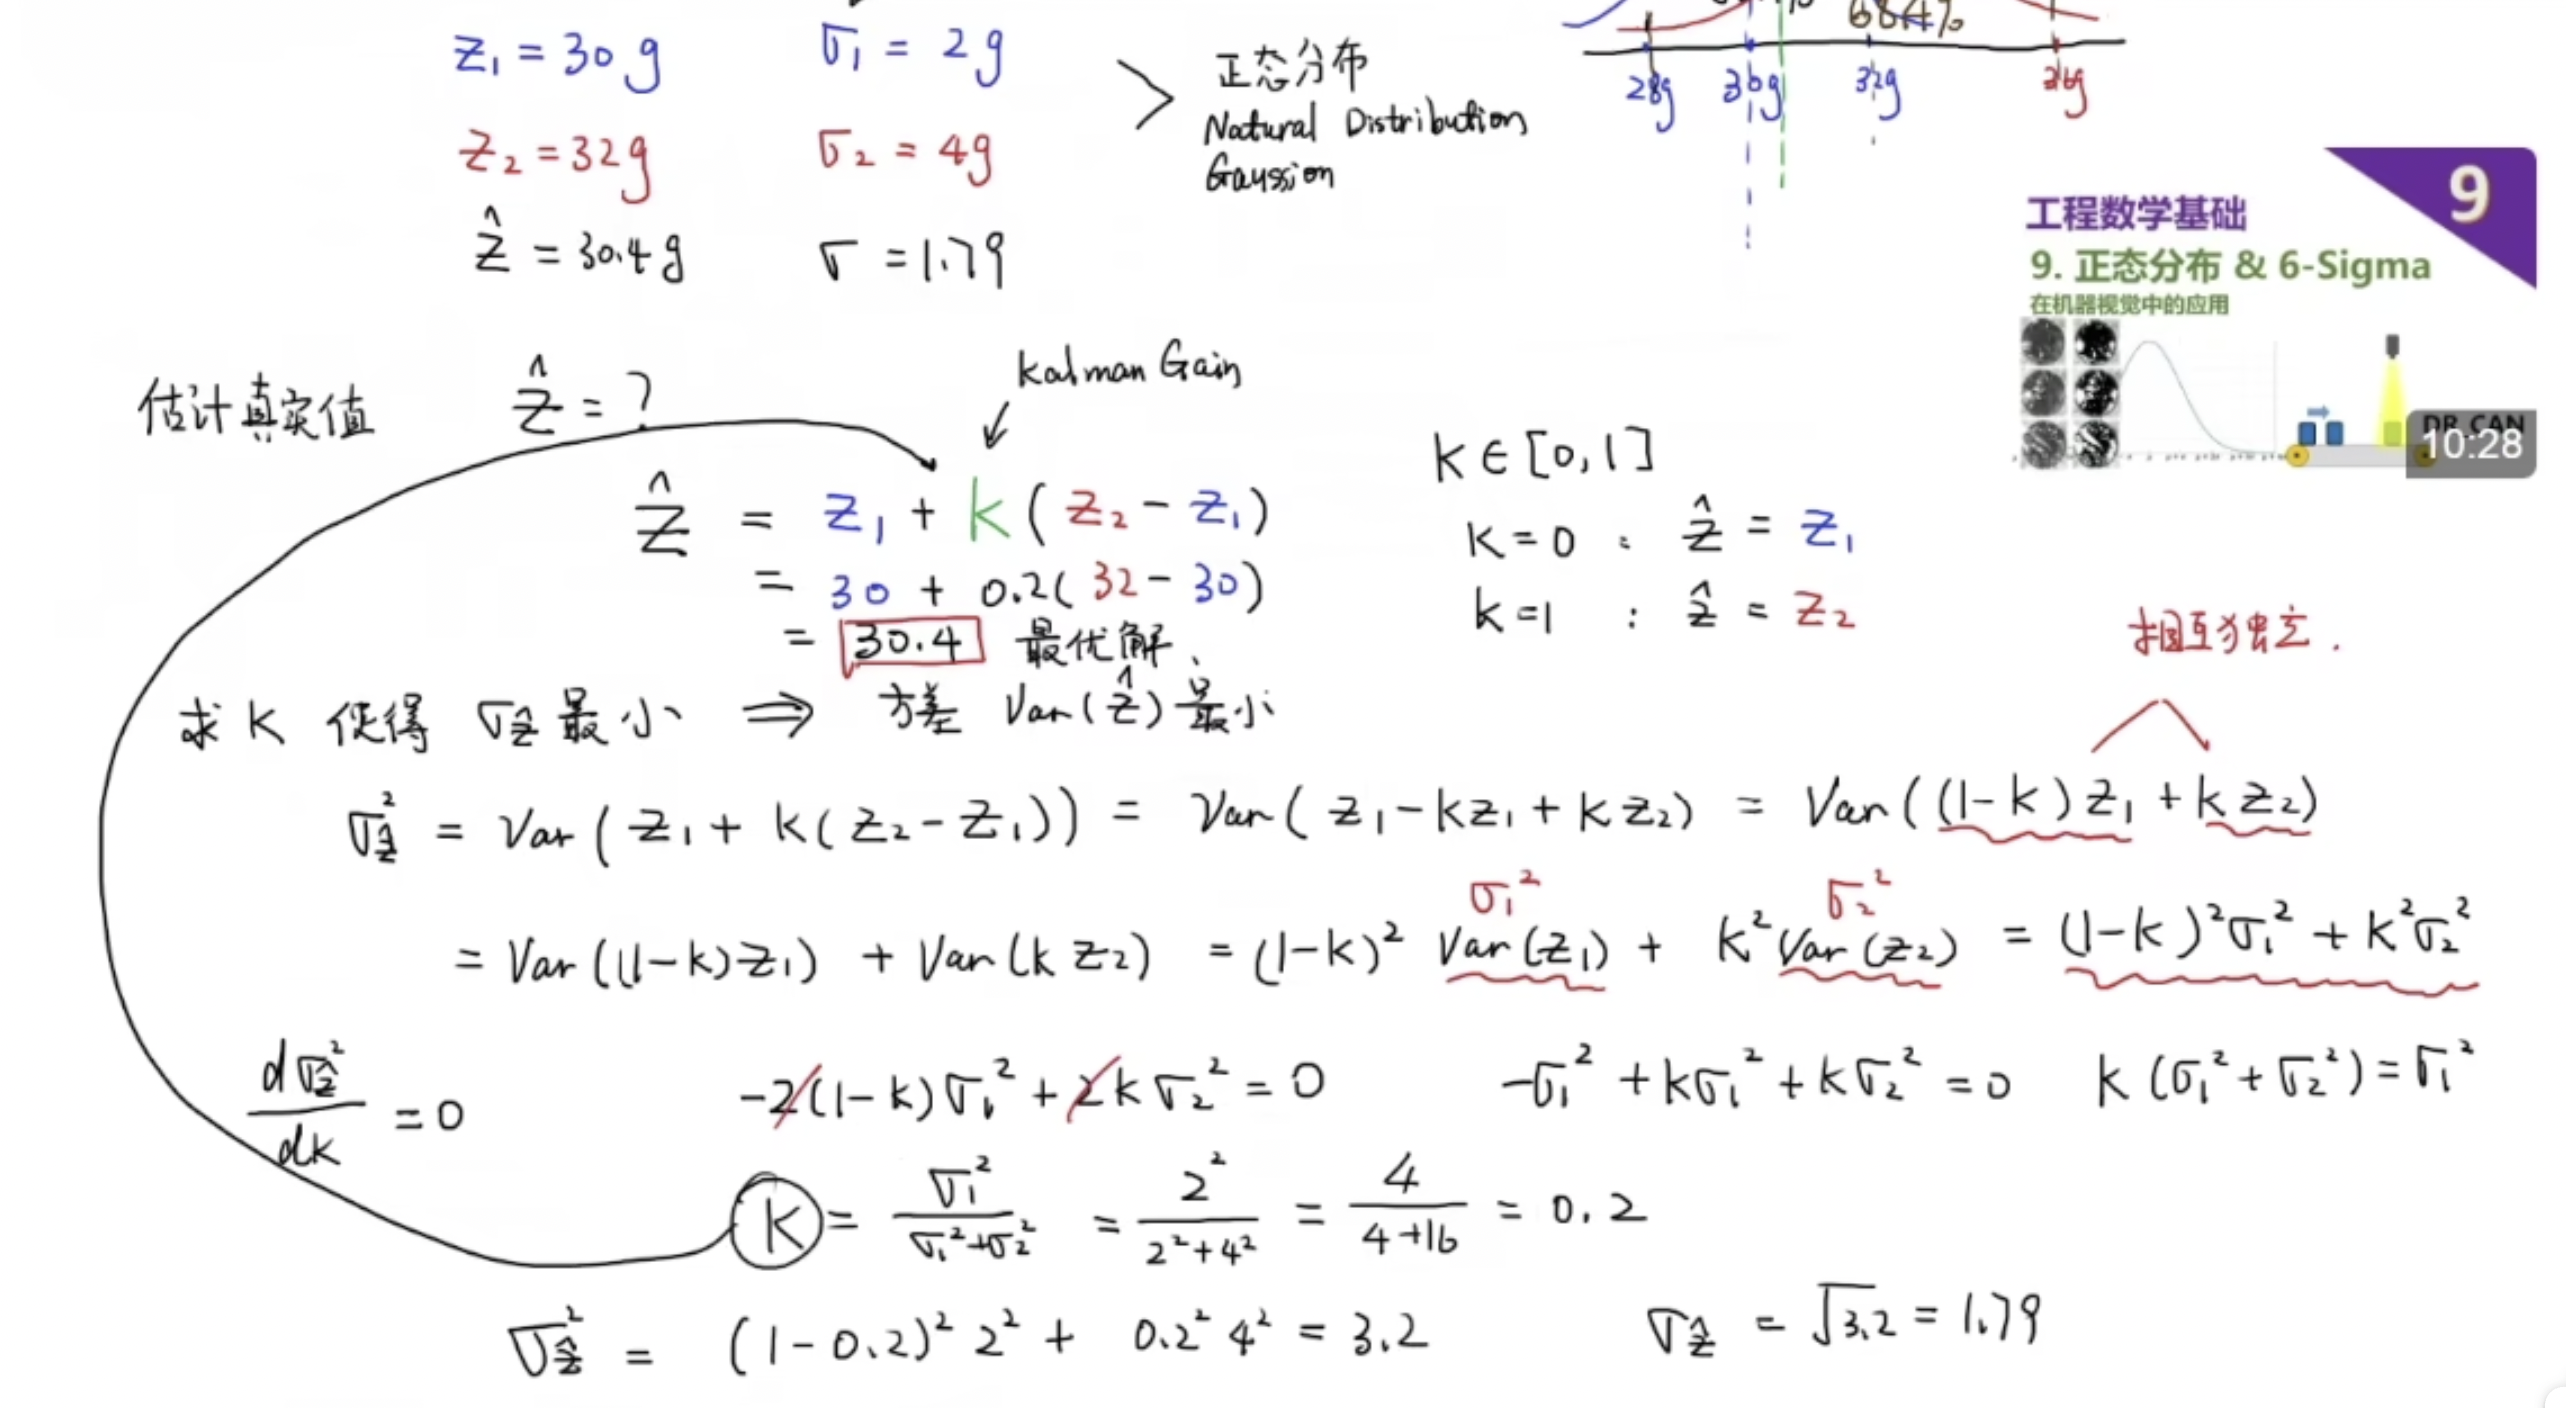 z₁ = 30g σ₁ = 2g
z₂ = 32g σ₂ = 4g
ẑ = 30.4g σ = 1.79
正态分布
Natural Distribution
Gaussion
68.4%
28g 30g 32g 36g
9
工程数学基础
9. 正态分布 & 6-Sigma
在机器视觉中的应用
DR_CAN
10:28
估计真实值 ẑ = ?
Kalman Gain
ẑ = z₁ + k(z₂ - z₁)
= 30 + 0.2(32 - 30)
= 30.4 最优解
k ∈ [0,1]
k = 0 : ẑ = z₁
k = 1 : ẑ = z₂
相互独立.
求 k 使得 σẑ 最小 ⇒ 方差 Var(ẑ) 最小
σẑ² = Var(z₁ + k(z₂ - z₁)) = Var(z₁ - kz₁ + kz₂) = Var((1-k)z₁ + kz₂)
σ₁² σ₂²
= Var((1-k)z₁) + Var(kz₂) = (1-k)² Var(z₁) + k² Var(z₂) = (1-k)²σ₁² + k²σ₂²
dσẑ²/dk = 0 -2(1-k)σ₁² + 2kσ₂² = 0 -σ₁² + kσ₁² + kσ₂² = 0 k(σ₁² + σ₂²) = σ₁²
k = σ₁²/(σ₁²+σ₂²) = 2²/(2²+4²) = 4/(4+16) = 0.2
σẑ² = (1-0.2)² 2² + 0.2² 4² = 3.2 σẑ = √3.2 = 1.79